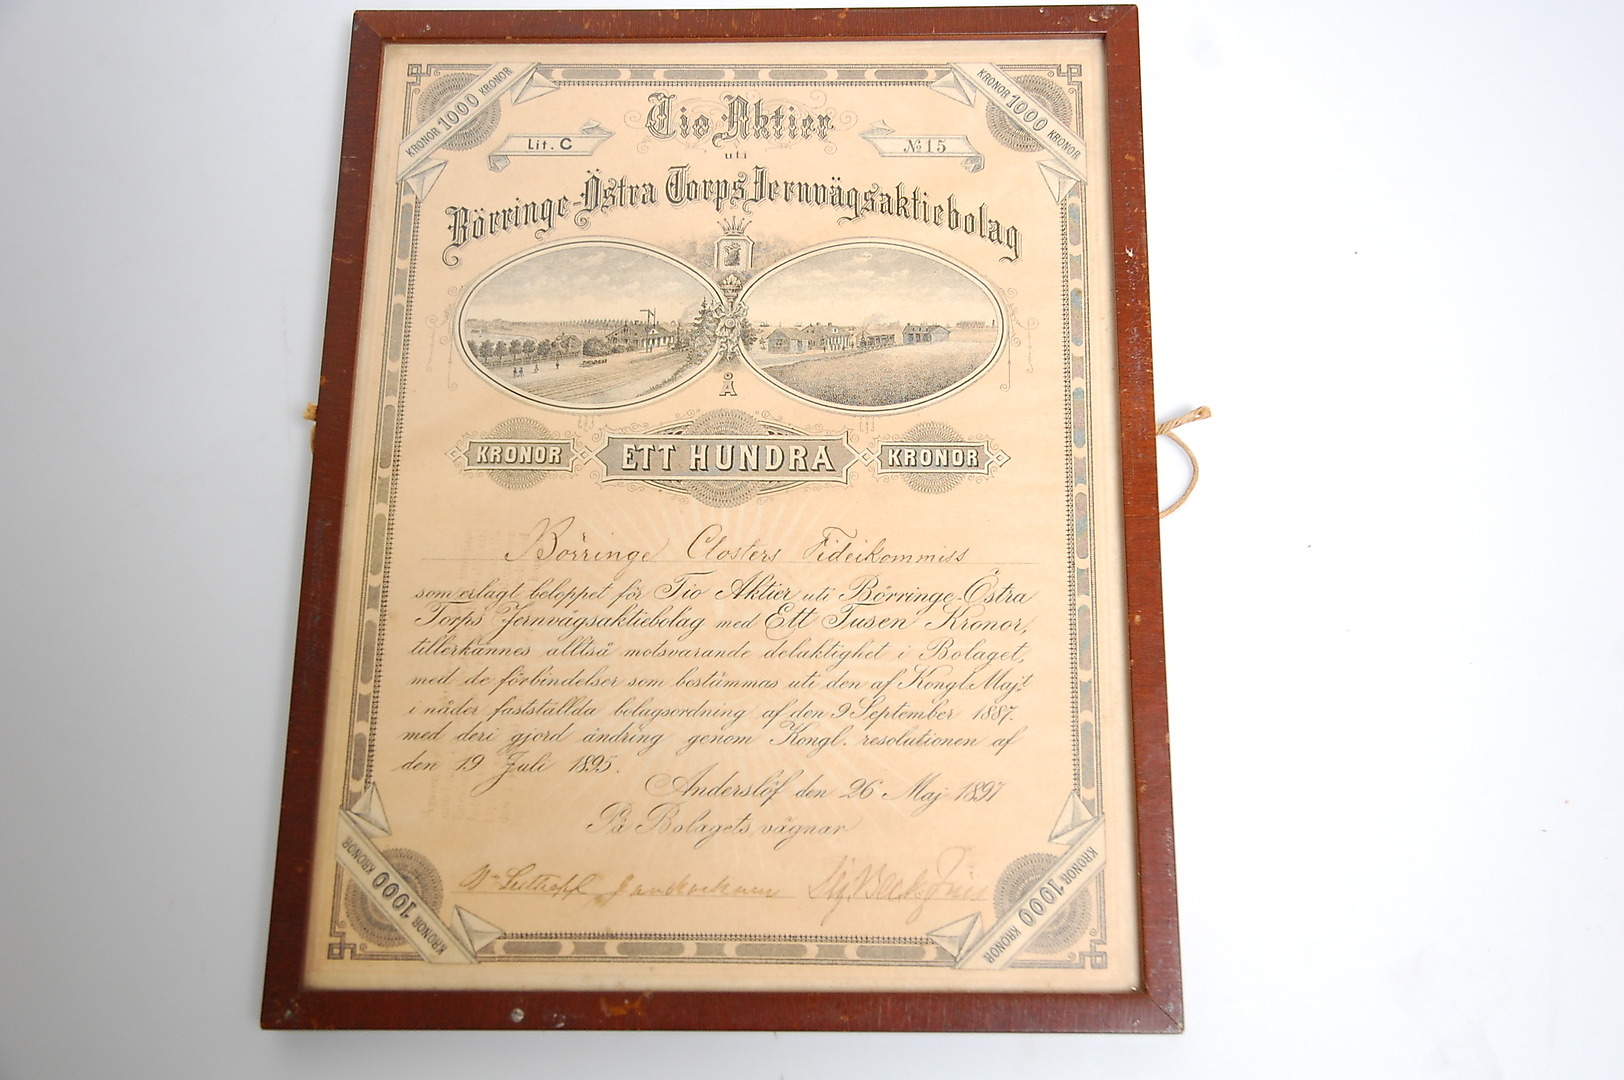 KRONOR 1000 KRONOR
KRONOR 1000 KRONOR
Tio Aktier
Lit. C
№ 15
uti
Börringe-Östra Torps Jernvägsaktiebolag
Å
KRONOR ETT HUNDRA KRONOR
Börringe Closters Fideikommiss
som erlagt beloppet för Tio Aktier uti Börringe-Östra
Torps Jernvägsaktiebolag med Ett Tusen Kronor,
tillerkännes alltså motsvarande delaktighet i Bolaget,
med de förbindelser som bestämmas uti den af Kongl. Maj:t
i nåder fastställda bolagsordning af den 9 September 1887.
med deri gjord ändring genom Kongl. resolutionen af
den 19 Juli 1895.
Anderslöf den 26 Maj 1897
På Bolagets vägnar
KRONOR 1000 KRONOR
KRONOR 1000 KRONOR